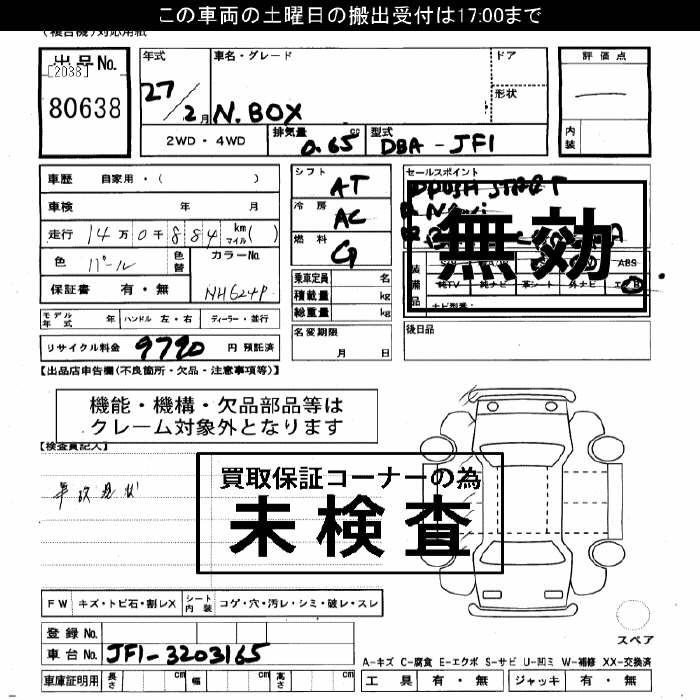 この車両の土曜日の搬出受付は17:00まで
(複合機)対応用紙
出品No.
[2038]
80638
年式
27
2月
車名・グレード
N.BOX
ドア
形状
評価点
内装
2WD・4WD
排気量
0.65 cc
型式
DBA-JF1
車歴 自家用・( )
車検 年 月
走行 14万0千884 km マイル ( )
色 パール
色替
カラーNo.
NH624P
保証書 有・無
シフト AT
冷房 AC
燃料 G
乗車定員 名
積載量 kg
総重量 kg
セールスポイント
無効
ABS
純TV 純ナビ 革シート 外ナビ
ナビ型番:
モデル年式 年 ハンドル 左・右 ディーラー・並行
名変期限 月 日
後日品
リサイクル料金 9790 円 預託済
【出品店申告欄(不良箇所・欠品・注意事項等)】
機能・機構・欠品部品等は
クレーム対象外となります
【検査員記入】
買取保証コーナーの為
未検査
FW キズ・トビ石・割レX シート内装 コゲ・穴・汚レ・シミ・破レ・スレ
スペア
登録No.
車台No. JF1-3203165
A-キズ C-腐食 E-エクボ S-サビ U-凹ミ W-補修 XX-交換済
車庫証明用 長さ cm 幅 cm 高さ cm
工具 有・無 ジャッキ 有・無